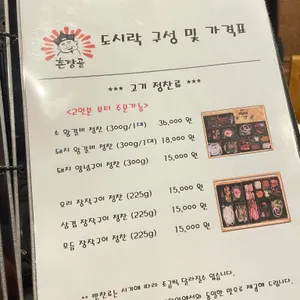 흔량골
도시락 구성 및 가격표
*** 고기 정찬류 ***
<2인분 부터 주문가능>
소 왕갈비 정찬 (300g/1대) 36,000 원
돼지 왕갈비 정찬 (300g/1대) 18,000 원
돼지 양념구이 정찬 (300g) 15,000 원
오리 장작구이 정찬 (225g) 15,000 원
삼겹 장작구이 정찬 (225g) 15,000 원
모듬 장작구이 정찬 (225g) 15,000 원
** 밑찬류는 시기에 따라 조금씩 달라질수 있습니다.
동일한 맛으로 제공해 드립니다.